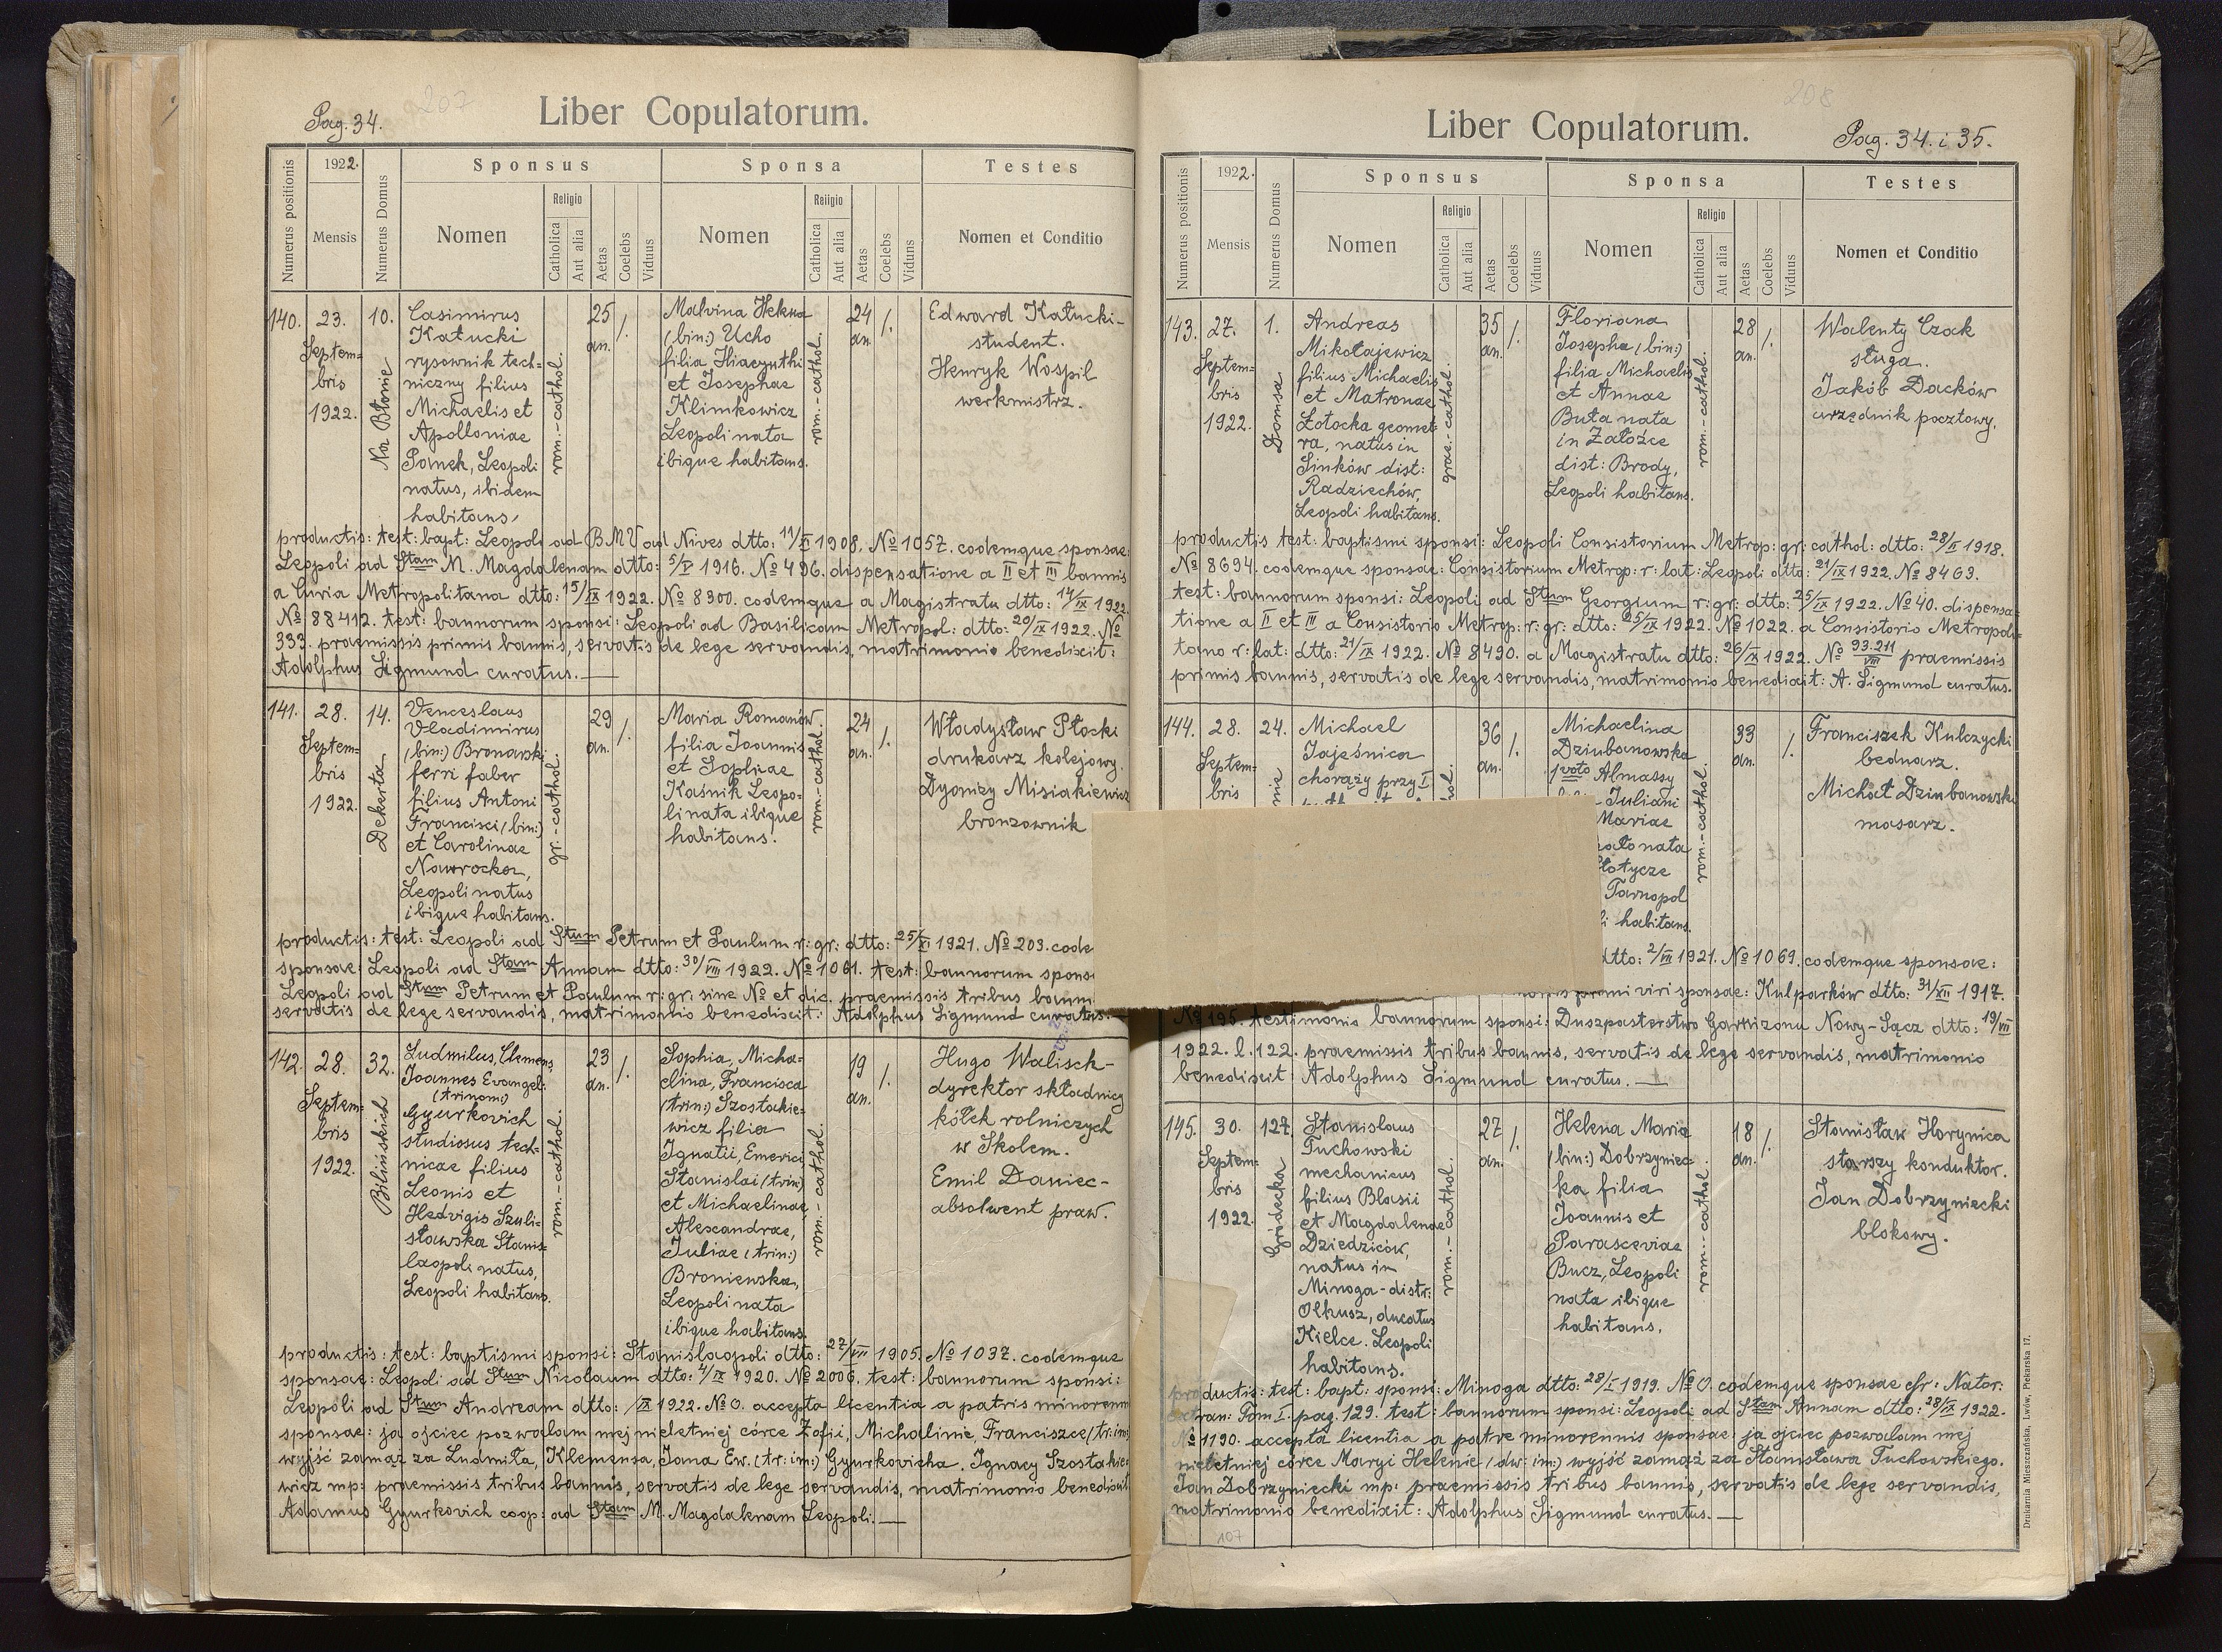 207
Pag. 34.
Liber Copulatorum.
Numerus positionis
1922.
Mensis
Numerus Domus
Sponsus
Nomen
Religio
Catholica
Aut alia
Aetas
Coelebs
Viduus
Sponsa
Nomen
Religio
Catholica
Aut alia
Aetas
Coelebs
Viduns
Testes
Nomen et Conditio
140.
23.
Septem=
bris
1922.
10.
Na Błonie
Casimirus
Kałucki
rysownik tech=
niczny filius
Michaelis et
Apolloniae
Panek, Leopoli
natus, ibidem
habitans,
rom.-cathol.
25
an.
/.
Malvina Helena
(bin:) Ucho
filia Hiacynthi
et Josephae
Klimkowicz
Leopoli nata
ibique habitans.
rom.-cathol.
24
an.
/.
Edward Kałucki-
student.
Henryk Wospil
werkmistrz.
productis: test: bapt: Leopoli ad B M V ad Nives dtto: 1908. № 1057. codemque sponsae:
Leopoli ad Stam M. Magdalenam dtto: 5/V 1916. № 496. dispensatione a II et III bannis
a Curia Metropolitana dtto: 15/IX 1922. № 8300. codemque a Magistratu dtto: 14/IX 1922.
№ 88412. test: bannorum sponsi: Leopoli ad Basilicam Metropol: dtto: 20/IX 1922. №
333. praemissis primis bannis, servatis de lege servandis, matrimonio benedixit:
Adolphus Sigmund curatus.
141.
28.
Septem=
bris
1922.
14.
Dekerta
Venceslaus
Vladimirus
(bin:) Bronarski
ferri faber
filius Antoni
Francisci (bin:)
et Carolinae
Nawrocka,
Leopoli natus
ibique habitans.
gr.-cathol.
29
an.
/.
Maria Romanów
filia Joannis
et Sophiae
Kaśnik Leopo=
li nata ibique
habitans.
rom.-cathol.
24
an.
/.
Władysław Płocki
drukarz kolejowy.
Dyonizy Misiakiewicz
bronzownik
productis: test: Leopoli ad Stum Petrum et Paulum r: gr: dtto: 25/XI 1921. № 203. code
sponsae: Leopoli ad Stam Annam dtto: 30/VIII 1922. № 1061. test: bannorum spons
Leopoli ad Stum Petrum et Paulum r: gr: sine № et die. praemissis tribus bann
servatis de lege servandis, matrimonio benedixit: Adolphus Sigmund curatus.
142.
28.
Septem=
bris
1922.
32.
Bilińskich
Ludmilus, Clemens,
Joannes Evangel:
(trinom:)
Gyurkovich
studiosus tech=
nicae filius
Leonis et
Hedvigis Szuli=
sławska Stanis=
laopoli natus,
Leopoli habitans.
rom.-cathol.
23
an.
/.
Sophia, Micha=
elina, Francisca
(trin:) Szostakie=
wicz filia
Ignatii, Emerici
Stanislai (trin:)
et Michaelinae,
Alexandrae,
Juliae (trin:)
Broniewska,
Leopoli nata
ibique habitans.
rom.-cathol.
19
an.
/.
Hugo Walisch-
dyrektor składnicy
kółek rolniczych
w Skolem.
Emil Daniec-
absolwent praw.
productis: test: baptismi sponsi: Stanislaopoli dtto: 27/VIII 1905. № 1037. codemque
sponsae: Leopoli ad Stum Nicolaum dtto: 4/IX 1920. № 2006. test: bannorum sponsi:
Leopoli ad Stum Andream dtto: /IX 1922. № 0. accepta licentia a patris minorenn
sponsae: ja ojciec pozwalam mej nieletniej córce Zofii, Michalinie, Franciszce (tr: im:
wyjść zamąż za Ludmiła, Klemensa, Jana Ew. (tr: im:) Gyurkovicha. Ignacy Szostakie=
wicz mp: praemissis tribus bannis, servatis de lege servandis, matrimonio benedixit
Adamus Gyurkovich coop: ad Stam M. Magdalenam Leopoli.
208
Liber Copulatorum.
Pag. 34. i 35.
Numerus positionis
1922.
Mensis
Numerus Domus
Sponsus
Nomen
Religio
Catholica
Aut alia
Aetas
Coelebs
Viduus
Sponsa
Nomen
Religio
Catholica
Aut alia
Aetas
Coelebs
Viduus
Testes
Nomen et Conditio
143.
27.
Septem=
bris
1922.
1.
Domsa
Andreas
Mikołajewicz
filius Michaelis
et Matronae
Łotocka geomet
ra, natus in
Sinków dist:
Radziechów,
Leopoli habitans.
grae.-cathol.
35
an.
/.
Floriana
Josepha (bin:)
filia Michaelis
et Annae
Buta nata
in Załoźce
dist: Brody,
Leopoli habitans.
rom.-cathol.
28
an.
/.
Walenty Czak
sługa.
Jakób Dacków
urzędnik pocztowy.
productis test: baptismi sponsi: Leopoli Consistorium Metrop: gr: cathol: dtto: 1918.
№ 8694. codemque sponsae: Consistorium Metrop: r: lat: Leopoli dtto: 21/IX 1922. № 8463.
test: bannorum sponsi: Leopoli ad Stum Georgium r: gr: dtto: 25/IX 1922. № 40. dispensa=
tione a II et III a Consistorio Metrop: r: gr: dtto: 25/IX 1922. № 1022. a Consistorio Metropoli=
tano r: lat: dtto: 21/IX 1922. № 8490. a Magistratu dtto: 26/IX 1922. № 93.211/VIII praemissis
primis bannis, servatis de lege servandis, matrimonio benedixit: A. Sigmund curatus.
144.
28.
Septem=
bris
24.
nie
Michael
Jajeśnica
chorąży przy 1
36
an.
/.
Michaelina
Dziubanowska
1voto Almassy
Juliani
Mariae
nata
łotycze
Tarnopol
i habitans.
rom.-cathol.
33
an.
/.
Franciszek Kulczycki
bednarz.
Michał Dziubanowski
masarz.
dtto: 2/VIII 1921. № 1069. codemque sponsae:
primi viri sponsae: Kulparków dtto: 31/XII 1917.
№ 195. testimonio bannorum sponsi: Duszpasterstwo Garnizonu Nowy-Sącz dtto: 19/VIII
1922. l. 122. praemissis tribus bannis, servatis de lege servandis, matrimonio
benedixit Adolphus Sigmund curatus.
145.
30.
Septem=
bris
1922.
127.
Gródecka
Stanislaus
Tuchowski
mechanicus
filius Blasii
et Magdalenae
Dziedziców,
natus in
Minoga - distr:
Olkusz, ducatus
Kielce. Leopoli
habitans.
rom.-cathol.
27
an.
/.
Helena Maria
(bin:) Dobrzyniec=
ka filia
Joannis et
Parasceviae
Bucz, Leopoli
nata ibique
habitans.
rom.-cathol
18
an.
/.
Stanisław Horynica
starszy konduktor.
Jan Dobrzyniecki
blokowy.
productis: test: bapt: sponsi: Minoga dtto: 28/I 1919. № 0. codemque sponsae cfr: Nator:
Tom I. pag. 129. test: bannorum sponsi: Leopoli ad Stam Annam dtto: 28/IX 1922.
№ 1190. accepta licentia a patre minorennis sponsae: ja ojciec pozwalam mej
nieletniej córce Maryi Helenie (dw: im:) wyjść zamąż za Stanisława Tuchowskiego.
Jan Dobrzyniecki mp: praemissis tribus bannis, servatis de lege servandis,
matrimonio benedixit: Adolphus Sigmund curatus.
107
Drukarnia Mieszczańska, Lwów, Piekarska 17.